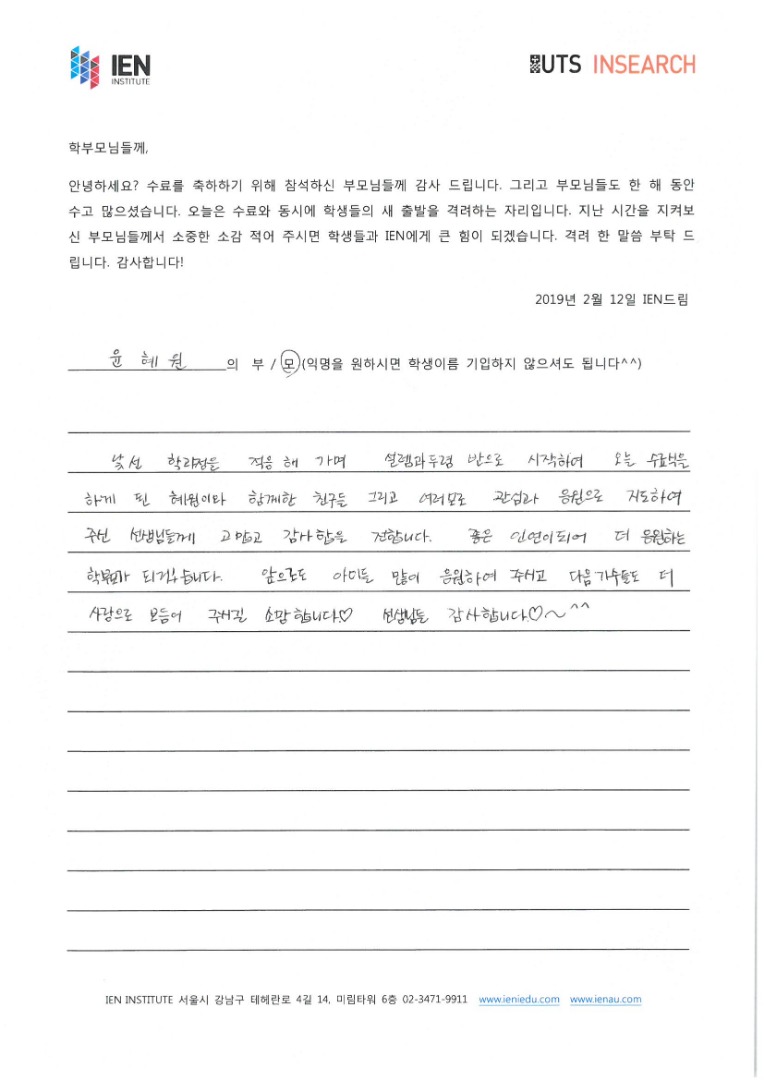 IEN
INSTITUTE
UTS INSEARCH
학부모님들께,
안녕하세요? 수료를 축하하기 위해 참석하신 부모님들께 감사 드립니다. 그리고 부모님들도 한 해 동안
수고 많으셨습니다. 오늘은 수료와 동시에 학생들의 새 출발을 격려하는 자리입니다. 지난 시간을 지켜보
신 부모님들께서 소중한 소감 적어 주시면 학생들과 IEN에게 큰 힘이 되겠습니다. 격려 한 말씀 부탁 드
립니다. 감사합니다!
2019년 2월 12일 IEN드림
윤혜원의 부 / 모 (익명을 원하시면 학생이름 기입하지 않으셔도 됩니다^^)
낯선 학과정을 적응해 가며 설렘과 두렴 반으로 시작하여 오늘 수료식을
하게 된 혜원이와 함께한 친구들 그리고 여러모로 관심과 응원으로 지도하여
주신 선생님들께 고맙고 감사함을 전합니다. 좋은 인연이 되어 더 응원하는
학부모가 되겠습니다. 앞으로도 아이들 많이 응원하여 주시고 다음 기수들도 더
사랑으로 보듬어 주시길 소망합니다♡ 선생님들 감사합니다♡~^^
IEN INSTITUTE 서울시 강남구 테헤란로 4길 14, 미림타워 6층 02-3471-9911 www.ieniedu.com www.ienau.com